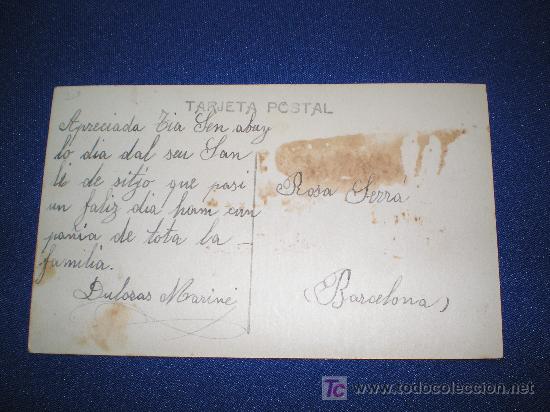 TARJETA POSTAL
Apreciada Tia Sen abuy
lo dia dal seu San
ti de sitjo que pasi
un faliz dia ham can
pañia de tota la -
familia.
Dulosas Mariné
Rosa Serrá
(Barcelona)
TC todocoleccion
www.todocoleccion.net